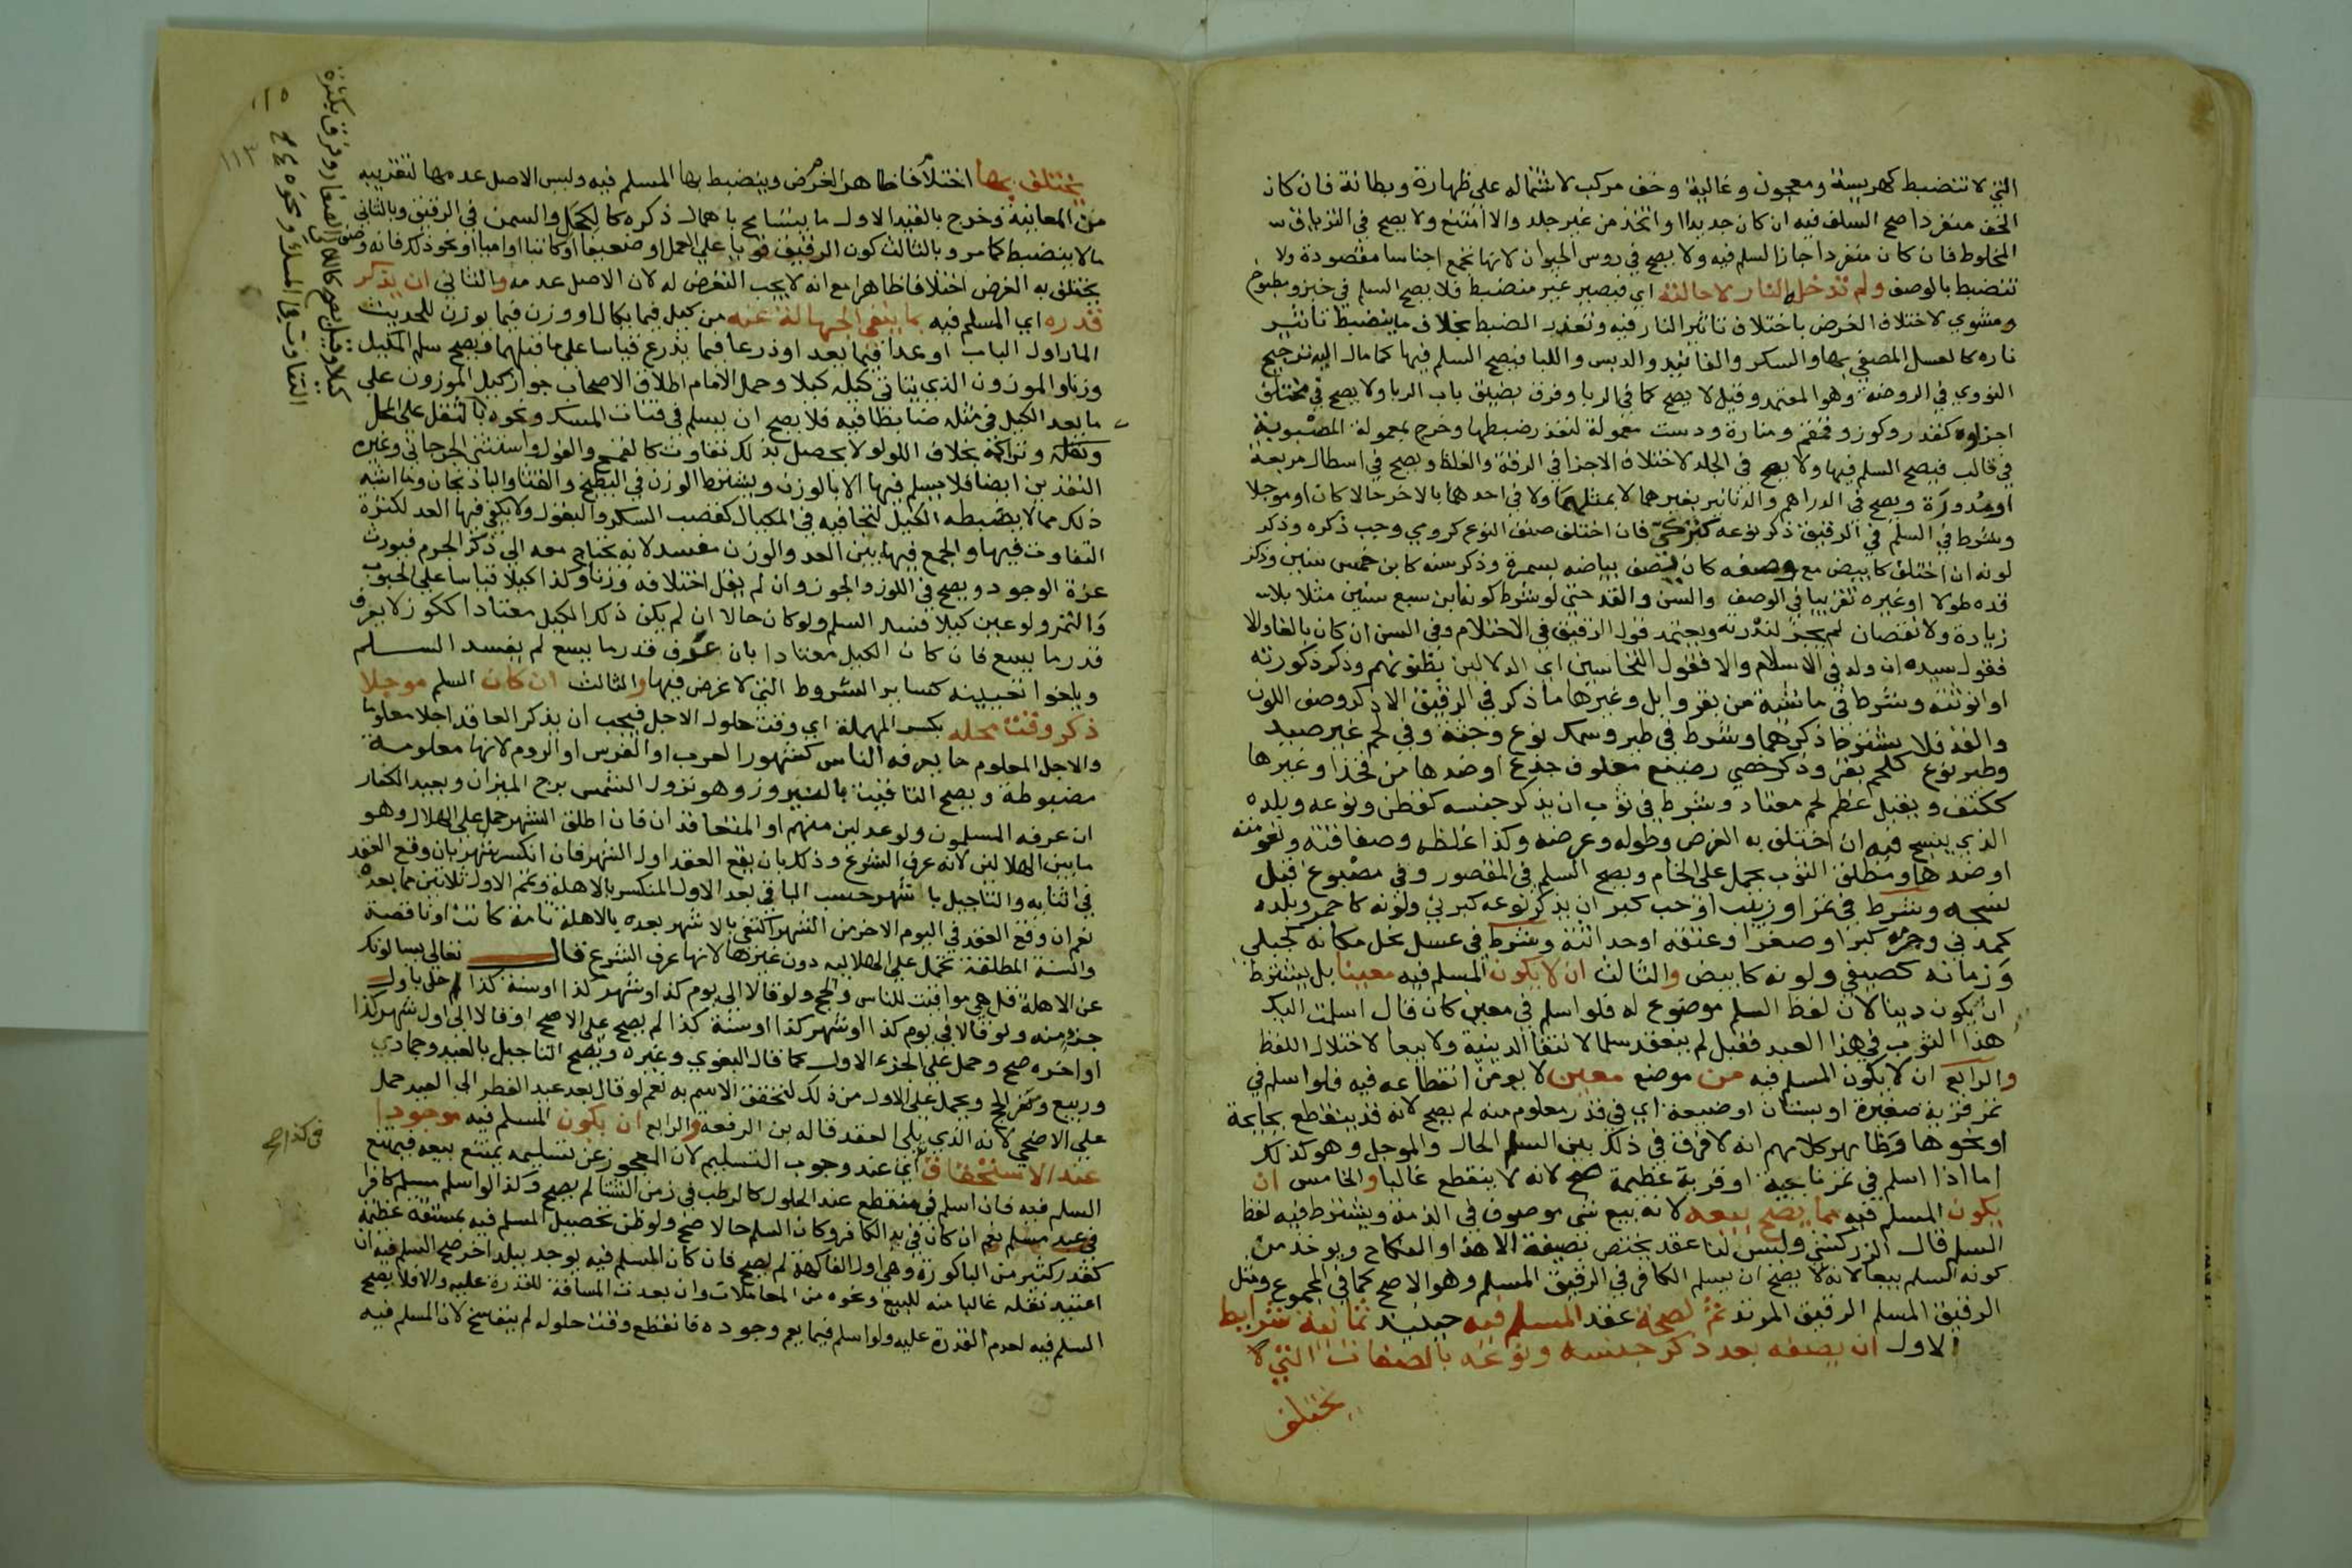 التي لا تنضبط كهريسة ومعجون وغالية وخف مركب لاشتماله على ظهارة وبطانة فان كان
الخف منفردا صح السلف فيه ان كان جديدا واتخذ من غير جلد والا امتنع ولا يصح في الترياق
المخلوط فان كان منفردا جاز السلم فيه ولا يصح في روس الحيوان لانها تجمع اجناسا مقصودة ولا
تنضبط بالوصف ولم تدخله النار لاحالته اي فيصير غير منضبط فلا يصح السلم في خبز ومطبوخ
ومشوي لاختلاف الغرض باختلاف تاثير النار فيه وتعذر الضبط بخلاف ما ينضبط تاثير
ناره كالعسل المصفي بها والسكر والفانيد والدبس واللبا فيصح السلم فيها كما مال اليه ترجيح
النووي في الروضة وهو المعتمد وقيل لا يصح كما في الربا وفرق بضيق باب الربا ولا يصح في مختلف
اجزاوه كقدر وكوز وقمقم ومنارة ودست معمولة لتعذر ضبطها وخرج بمعمولة المصبوبة
في قالب فيصح السلم فيها ولا يصح في الجلد لاختلاف الاجزا في الرقة والغلظ ويصح في اسطال مربعة
او مدورة ويصح في الدراهم والدنانير بغيرهما لا بمثلهما ولا في احدهما بالاخر حالا كان او موجلا
وشرط في السلم في الرقيق ذكر نوعه كتركي فان اختلف صنف النوع كرومي وجب ذكره وذكر
لونه ان اختلف كابيض مع وصفه كان يصف بياضه بسمرة وذكر سنه كابن خمس سنين وذكر
قده طولا او غيره تقريبا في الوصف والسن والقد حتى لو شرط كونه ابن سبع سنين مثلا بلا
زيادة ولا نقصان لم يجز لندرته ويعتمد قول الرقيق في الاحتلام وفي السن ان كان بالغا والا
فقول سيده ان ولد في الاسلام والا فقول النخاسين اي الدلالين بظنونهم وذكر ذكورته
او انوثته وشرط في ماشية من بقر وابل وغيرها ما ذكر في الرقيق الا ذكر وصف اللون
والقد فلا يشترط ذكرهما وشرط في طير وسمك نوع وجثة وفي لحم غير صيد
وطير نوع كلحم بقر وذكر خصي رضيع معلوف جذع او ضدها من فخذ او غيرها
ككتف ويقبل عظم لحم معتاد وشرط في ثوب ان يذكر جنسه كقطن ونوعه وبلده
الذي ينسج فيه ان اختلف به الغرض وطوله وعرضه وكذا غلظه وصفاقته ونعومته
او ضدها ومطلق الثوب يحمل على الخام ويصح السلم في المقصور وفي مصبوغ قبل
نسجه وشرط في تمر او زبيب او حب كبر ان يذكر نوعه كبرني ولونه كاحمر وبلده
كمدني وجرمه كبرا وصغرا وعتقه او حداثته وشرط في عسل نحل مكانه كجبلي
وزمانه كصيفي ولونه كابيض والثالث ان لا يكون المسلم فيه معينا بل يشترط
ان يكون دينا لان لفظ السلم موضوع له فلو اسلم في معين كان قال اسلمت اليك
هذا الثوب في هذا العبد فقبل لم ينعقد سلما لانتفا الدينية ولا بيعا لاختلال اللفظ
والرابع ان لا يكون المسلم فيه من موضع معين لا يومن انقطاعه فيه فلو اسلم في
تمر قرية صغيرة او بستان او ضيعة اي في قدر معلوم منه لم يصح لانه قد ينقطع بجايحة
او نحوها وظاهر كلامهم انه لا فرق في ذلك بين السلم الحال والموجل وهو كذلك
اما اذا اسلم في تمر ناحية او قرية عظيمة صح لانه لا ينقطع غالبا والخامس ان
يكون المسلم فيه مما يصح بيعه لانه بيع شي موصوف في الذمة ويشترط فيه لفظ
السلم قال الزركشي وليس لنا عقد يختص بصيغة الا هذا والنكاح ويوخذ من
كونه السلم بيعا لانه لا يصح ان يسلم الكافر في الرقيق المسلم وهو الاصح كما في المجموع ومثل
الرقيق المسلم الرقيق المرتد ثم لصحة عقد المسلم فيه حينيذ ثمانية شرايط
الاول ان يصفه بعد ذكر جنسه ونوعه بالصفات التي لا
يختلف
يختلف بها اختلافا ظاهرا الغرض وينضبط بها المسلم فيه وليس الاصل عدمها لتقريبه
من المعاينة وخرج بالقيد الاول ما يتسامح باهمال ذكره كالكحل والسمن في الرقيق وبالثاني
ما لا ينضبط كما مر وبالثالث كون الرقيق قويا على العمل او ضعيفا او كاتبا او اميا او نحو ذلك فانه وصف
يختلف به الغرض اختلافا ظاهرا مع انه لا يجب التعرض له لان الاصل عدمه والثاني ان يذكر
قدره اي المسلم فيه بما ينفي الجهالة عنه من كيل فيما يكال او وزن فيما يوزن للحديث
المار اول الباب او عدا فيما يعد او ذرعا فيما يذرع قياسا على ما قبلهما ويصح سلم المكيل
وزنا والموزون الذي يتاتى كيله كيلا وحمل الامام اطلاق الاصحاب جواز كيل الموزون على
ما يعد الكيل في مثله ضابطا فيه فلا يصح ان يسلم في فتات المسك ونحوه بالثقل على المحل
وتراكمه بخلاف اللولو لا يحصل بذلك تفاوت كالقمح والفول واستثنى الجرجاني وغيره
النقدين ايضا فلا يسلم فيها الا بالوزن ويشترط الوزن في البطيخ والقثا والباذنجان وما اشبه
ذلك مما لا يضبطه الكيل لتجافيه في المكيال كقصب السكر والبقول ولا يكفي فيها العد لكثرة
التفاوت فيها والجمع فيها بين العد والوزن مفسد لانه يحتاج معه الي ذكر الجرم فيورث
عزة الوجود ويصح في اللوز والجوز وان لم يقل اختلافه وزنا وكذا كيلا قياسا على الحبوب
والتمر ولو عين كيلا فسد السلم ولو كان حالا ان لم يكن ذلك الكيل معتادا ككوز لا يعرف
قدر ما يسع فان كان الكيل معتادا بان عرف قدر ما يسع لم يفسد السلم
ويلغوا تعيينه كساير الشروط التي لا غرض فيها والثالث ان كان السلم موجلا
ذكر وقت محله بكسر المهملة اي وقت حلول الاجل فيجب ان يذكر العاقد اجلا معلوما
والاجل المعلوم ما يعرفه الناس كشهور العرب او الفرس او الروم لانها معلومة
مضبوطة ويصح التاقيت بالنيروز وهو نزول الشمس برج الميزان وبعيد الكفار
ان عرفه المسلمون ولو عدلين منهم او المتعاقدان فان اطلق الشهر حمل على الهلال وهو
ما بين الهلالين لانه عرف الشرع وذلك بان يقع العقد اول الشهر فان انكسر شهر بان وقع العقد
في اثنايه والتاجيل باشهر حسب الباقي بعد الاول المنكسر بالاهلة وتمم الاول ثلاثين مما بعده
نعم ان وقع العقد في اليوم الاخر من الشهر اكتفي بالاشهر بعده بالاهلة تامة كانت او ناقصة
والسنة المطلقة تحمل على الهلالية دون غيرها لانها عرف الشرع قال تعالى يسالونك
عن الاهلة قل هي مواقيت للناس والحج ولو قالا الى يوم كذا او شهر كذا او سنة كذا حل باول
جزء منه ولو قالا في يوم كذا او شهر كذا او سنة كذا لم يصح على الاصح او قالا الى اول شهر كذا
او اخره صح وحمل على الجزء الاول كما قال البغوي وغيره ويصح التاجيل بالعيد وجمادي
وربيع ونفر الحج ويحمل على الاول من ذلك لتحقق الاسم به نعم لو قال بعد عيد الفطر الى العيد حمل
على الاضحي لانه الذي يلي العقد قاله بن الرفعة والرابع ان يكون المسلم فيه موجودا
عند الاستحقاق اي عند وجوب التسليم لان المعجوز عن تسليمه يمتنع بيعه فيمتنع
السلم فيه فان اسلم في منقطع عند الحلول كالرطب في زمن الشتا لم يصح وكذا لو اسلم مسلم كافرا
في عبد مسلم نعم ان كان في يد الكافر وكان السلم حالا صح ولو ظن تحصيل المسلم فيه بمشقة عظيمة
كقدر كثير من الباكورة وهي اول الفاكهة لم يصح فان كان المسلم فيه يوجد ببلد اخر صح السلم فيه ان
اعتيد نقله غالبا منه للبيع ونحوه من المعاملات وان بعدت المسافة للقدرة عليه والا فلا يصح
السلم فيه لعدم القدرة عليه ولو اسلم فيما يعم وجوده فانقطع وقت حلوله لم ينفسخ لان المسلم فيه
١١٣
كيلا وقيل يصح كاللالي الصغار وفرق بكثرة
التفاوت في المسك ونحوه
في كذا صح